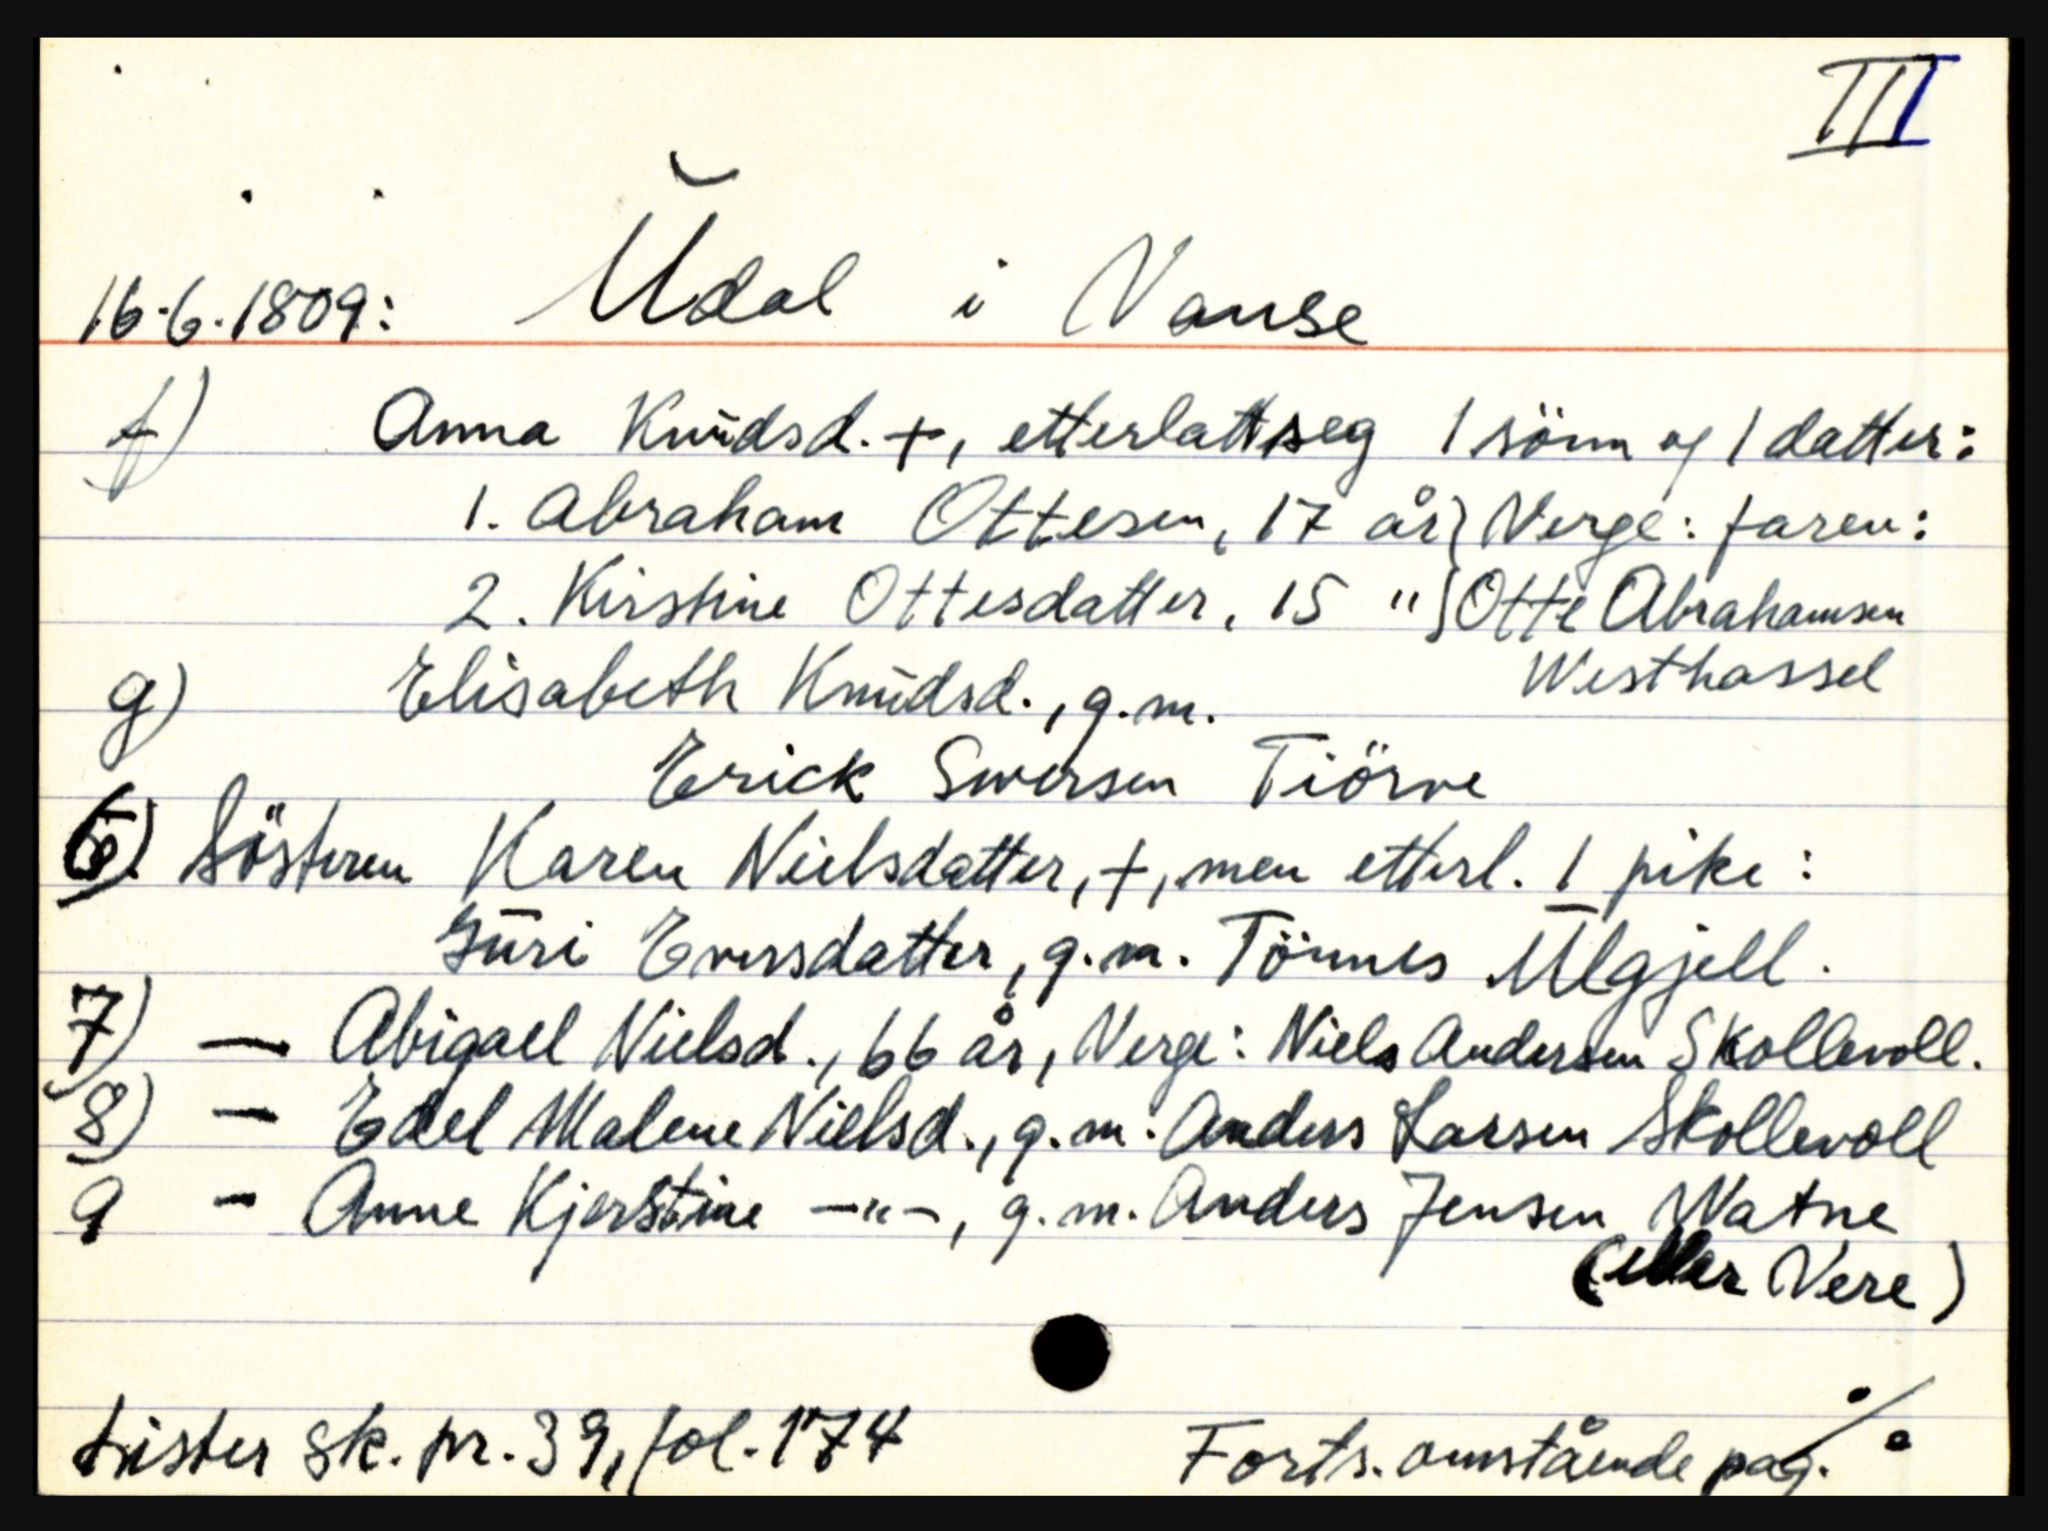 III
16.6.1809: Udal i Vanse
f) Anna Knudsd. +, etterlatt seg 1 sönn og 1 datter:
1. Abraham Ottesen, 17 år } Verge: faren:
2. Kirstine Ottesdatter, 15 " } Otte Abrahamsen
Westhassel
g) Elisabeth Knudsd., g.m.
Erick Siversen Tiörve
6) Sösteren Karen Nielsdatter, +, men etterl. 1 pike:
Guri Eversdatter, g.m. Tönnes Ulgjell.
7) — Abigael Nielsd., 66 år, Verge: Niels Andersen Skollevoll.
8) — Edel Malene Nielsd., g.m. Anders Larsen Skollevoll
9 - Anne Kjerstine -"-, g.m. Anders Jensen Watne
(eller Vere)
Lister sk. pr. 39, fol. 174
Forts. omstående pag. ./.